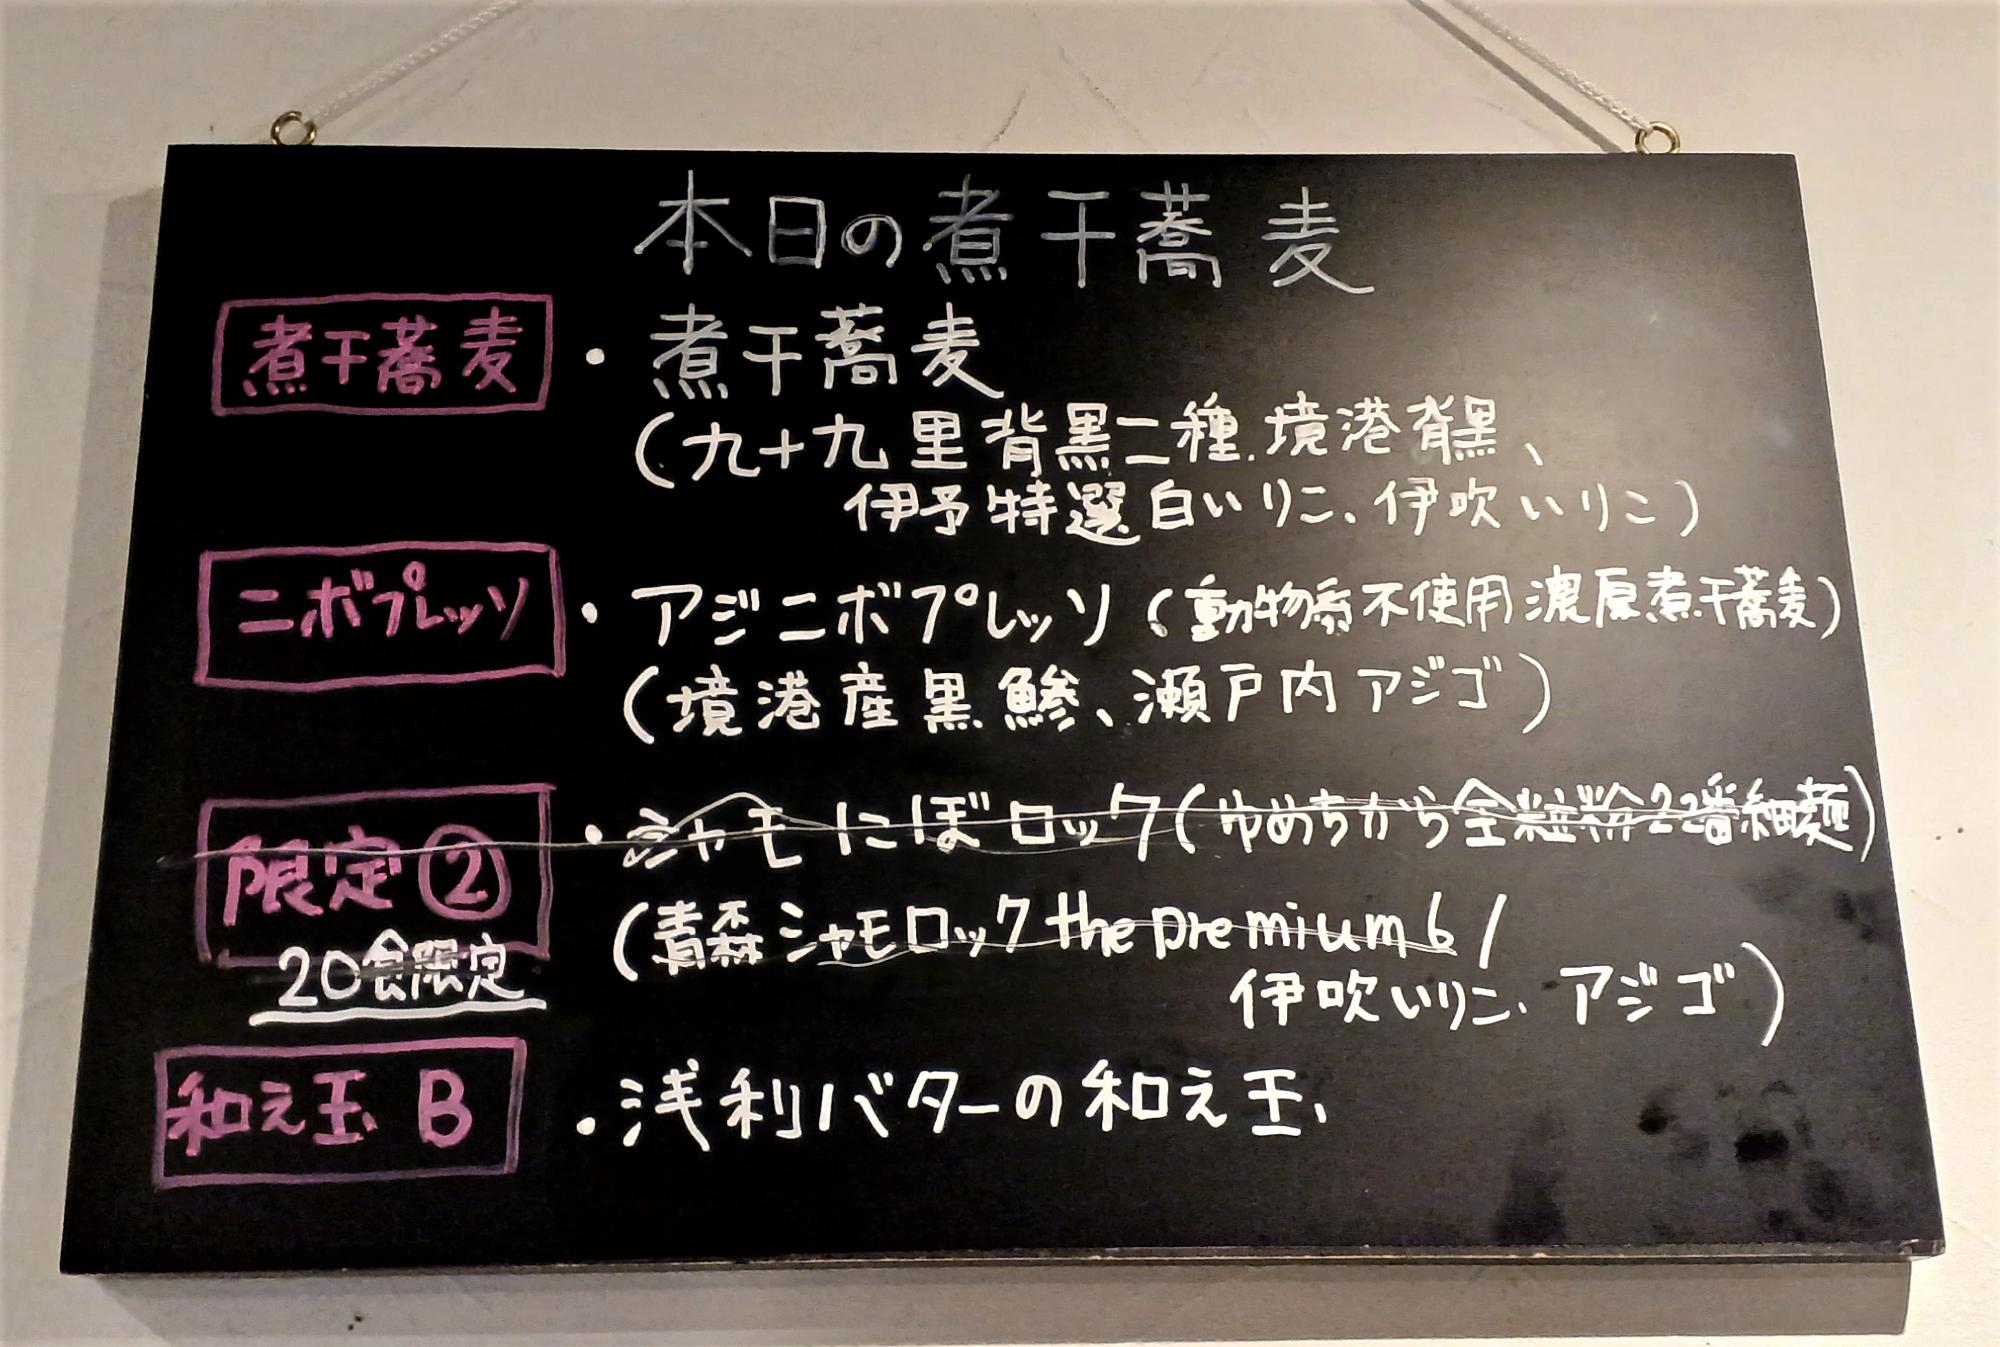 本日の煮干蕎麦
煮干蕎麦 ・煮干蕎麦
(九十九里背黒二種、境港背黒、
伊予特選白いりこ、伊吹いりこ)
ニボプレッソ ・アジニボプレッソ(動物系不使用濃厚煮干蕎麦)
(境港産黒鯵、瀬戸内アジゴ)
限定② ・シャモにぼロック(ゆめちから全粒粉22番細麺)
20食限定 (青森シャモロック the premium 6 /
伊吹いりこ、アジゴ)
和え玉 B ・浅利バターの和え玉